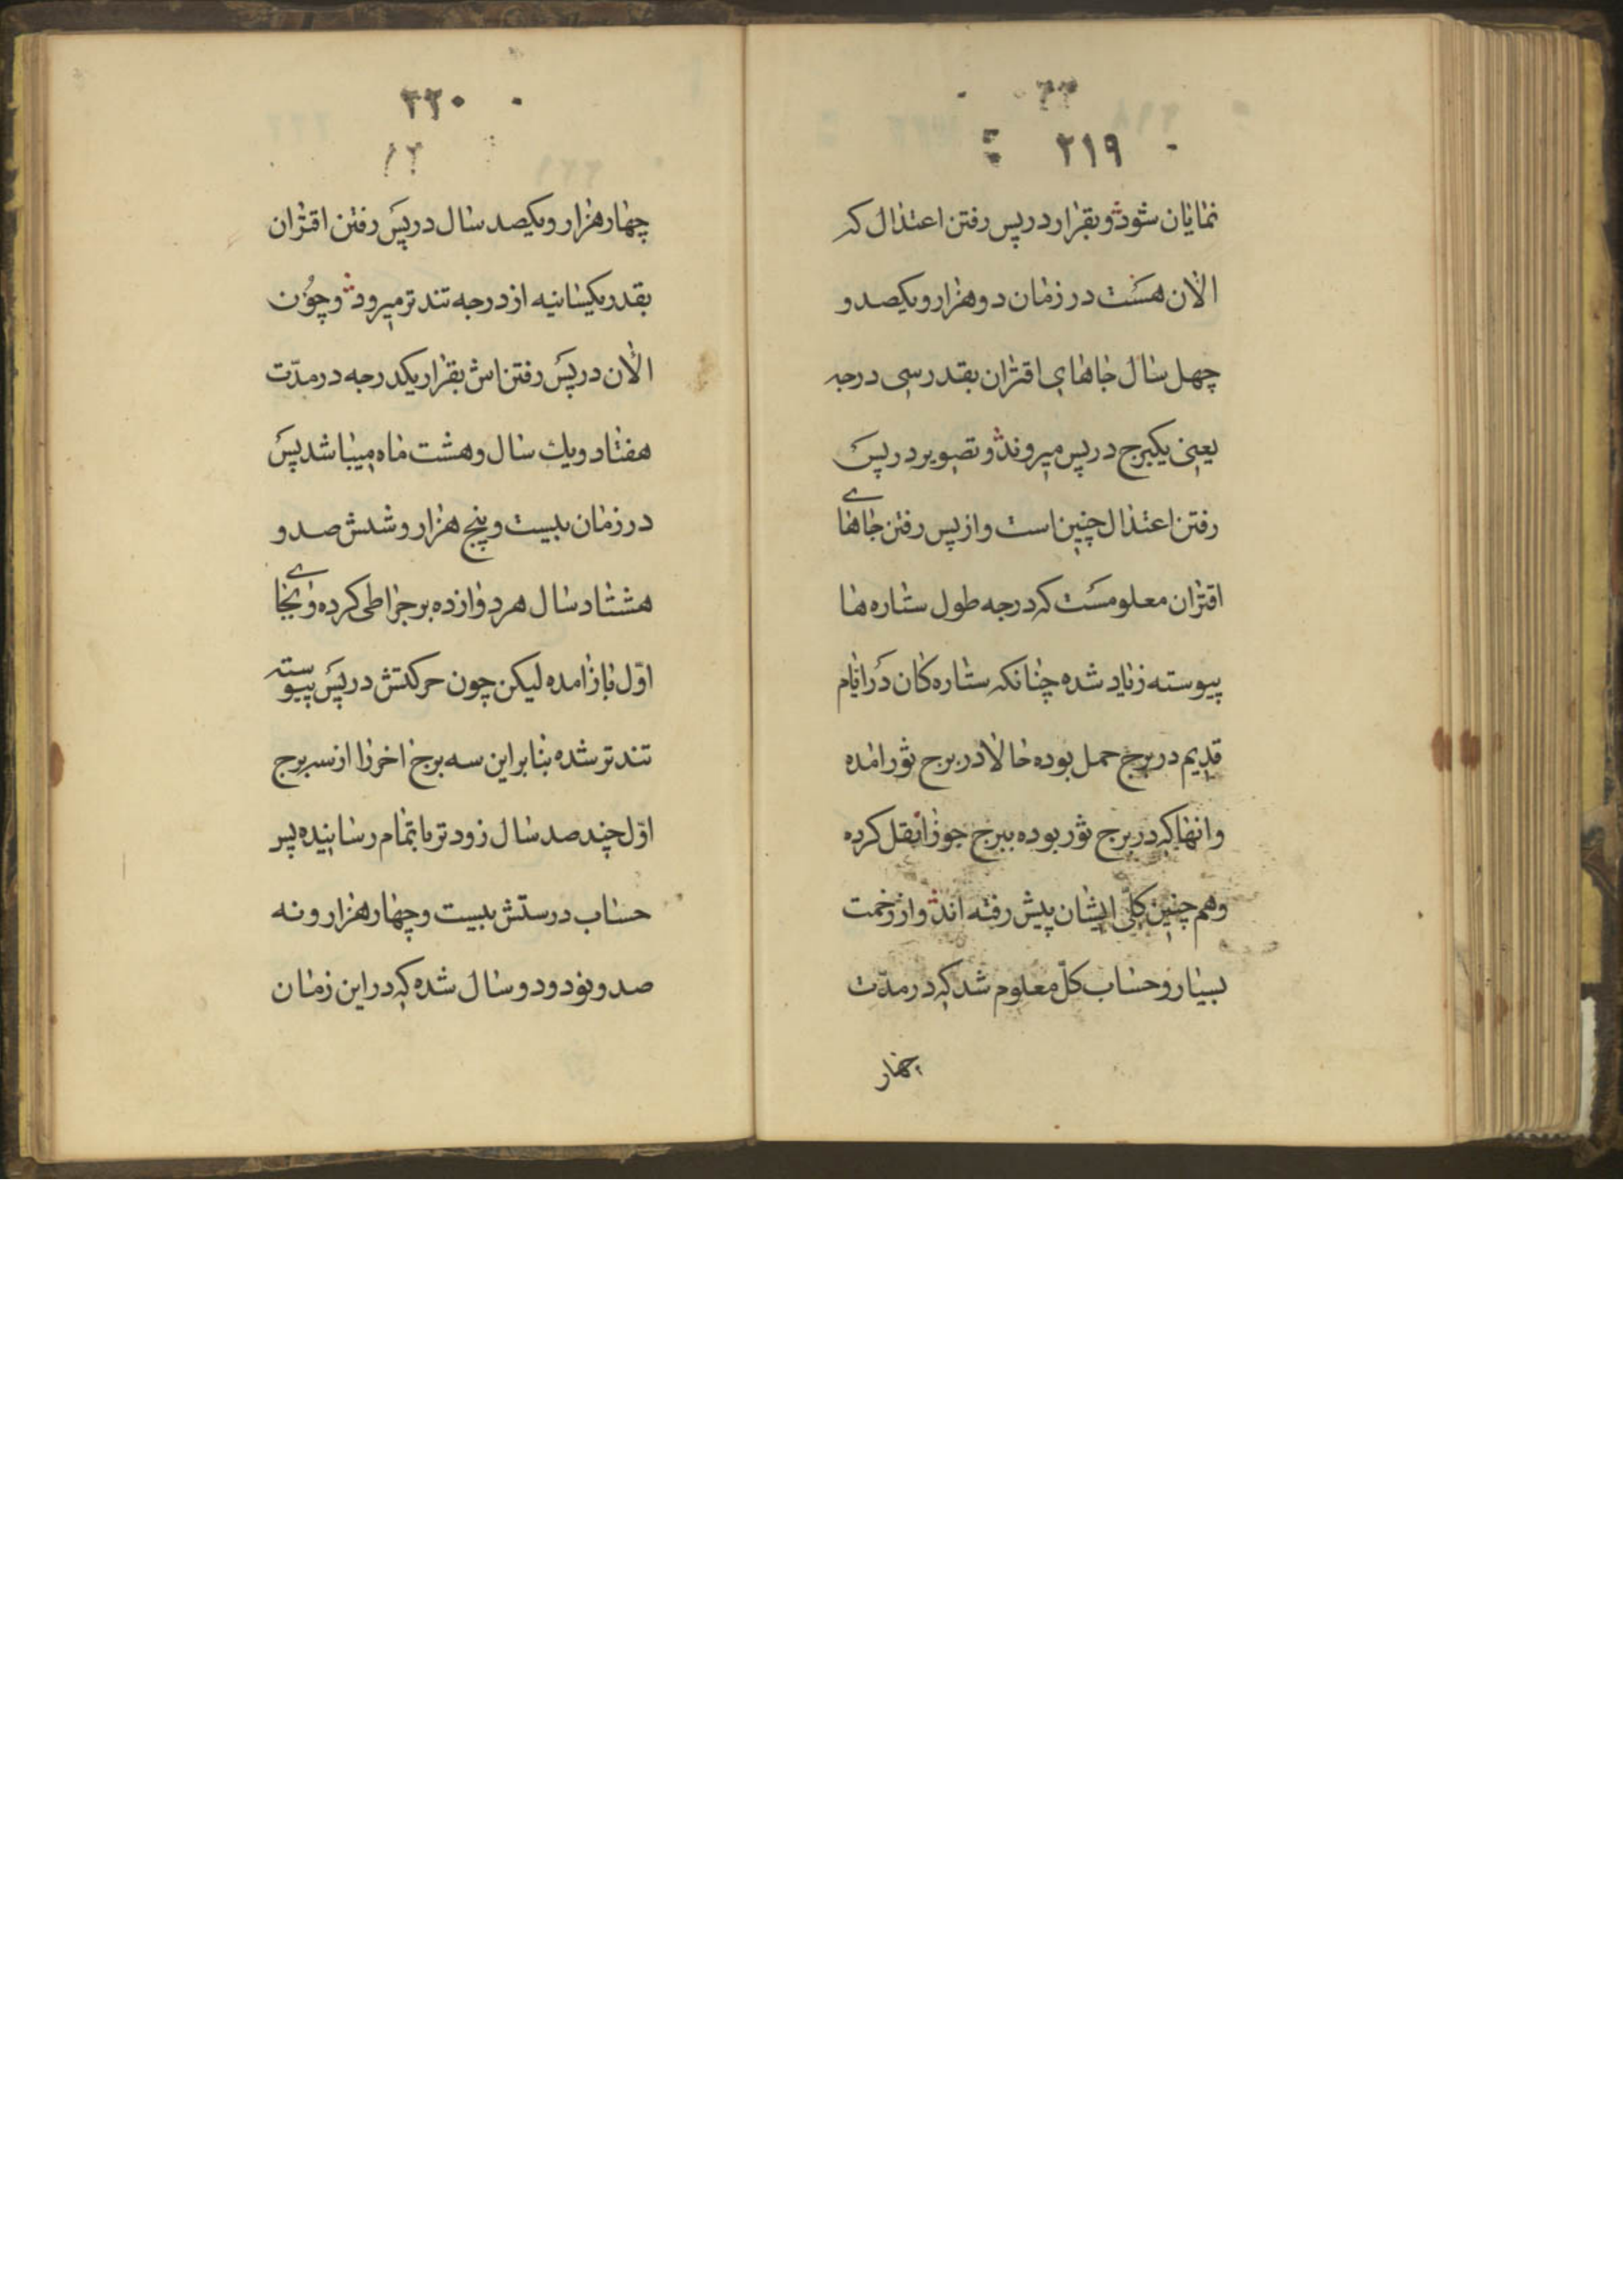 ۲۱۹
نمایان شود و بقرار در پس رفتن اعتدال که
الان هست در زمان دو هزار و یکصد و
چهل سال جاهای اقتران بقدر سی درجه
یعنی یکبرج در پس میروند و تصویر در پس
رفتن اعتدال چنین است و از پس رفتن جاهای
اقتران معلومست که درجه طول ستاره ها
پیوسته زیاد شده چنانکه ستاره کان در ایام
قدیم در برج حمل بوده حالا در برج ثور امده
و انها که در برج ثور بوده ببرج جوزا نقل کرده
و هم چنین کلّی ایشان پیش رفته اند و از زحمت
بسیار و حساب کلّ معلوم شد که در مدّت
چهار
۲۲۰
۲۱
چهار هزار و یکصد سال در پس رفتن اقتران
بقدر یکثانیه از درجه تندتر میرود و چون
الان در پس رفتن اش بقرار یکدرجه در مدّت
هفتاد و یك سال و هشت ماه میباشد پس
در زمان بیست و پنج هزار و شش صد و
هشتاد سال هر دوازده برجرا طی کرده و بجای
اوّل باز امده لیکن چون حرکتش در پس پیوسته
تندتر شده بنا بر این سه برج اخر را از سه برج
اوّل چند صد سال زودتر باتمام رسانیده پس
حساب درستش بیست و چهار هزار و نه
صد و نود و دو سال شده که در این زمان